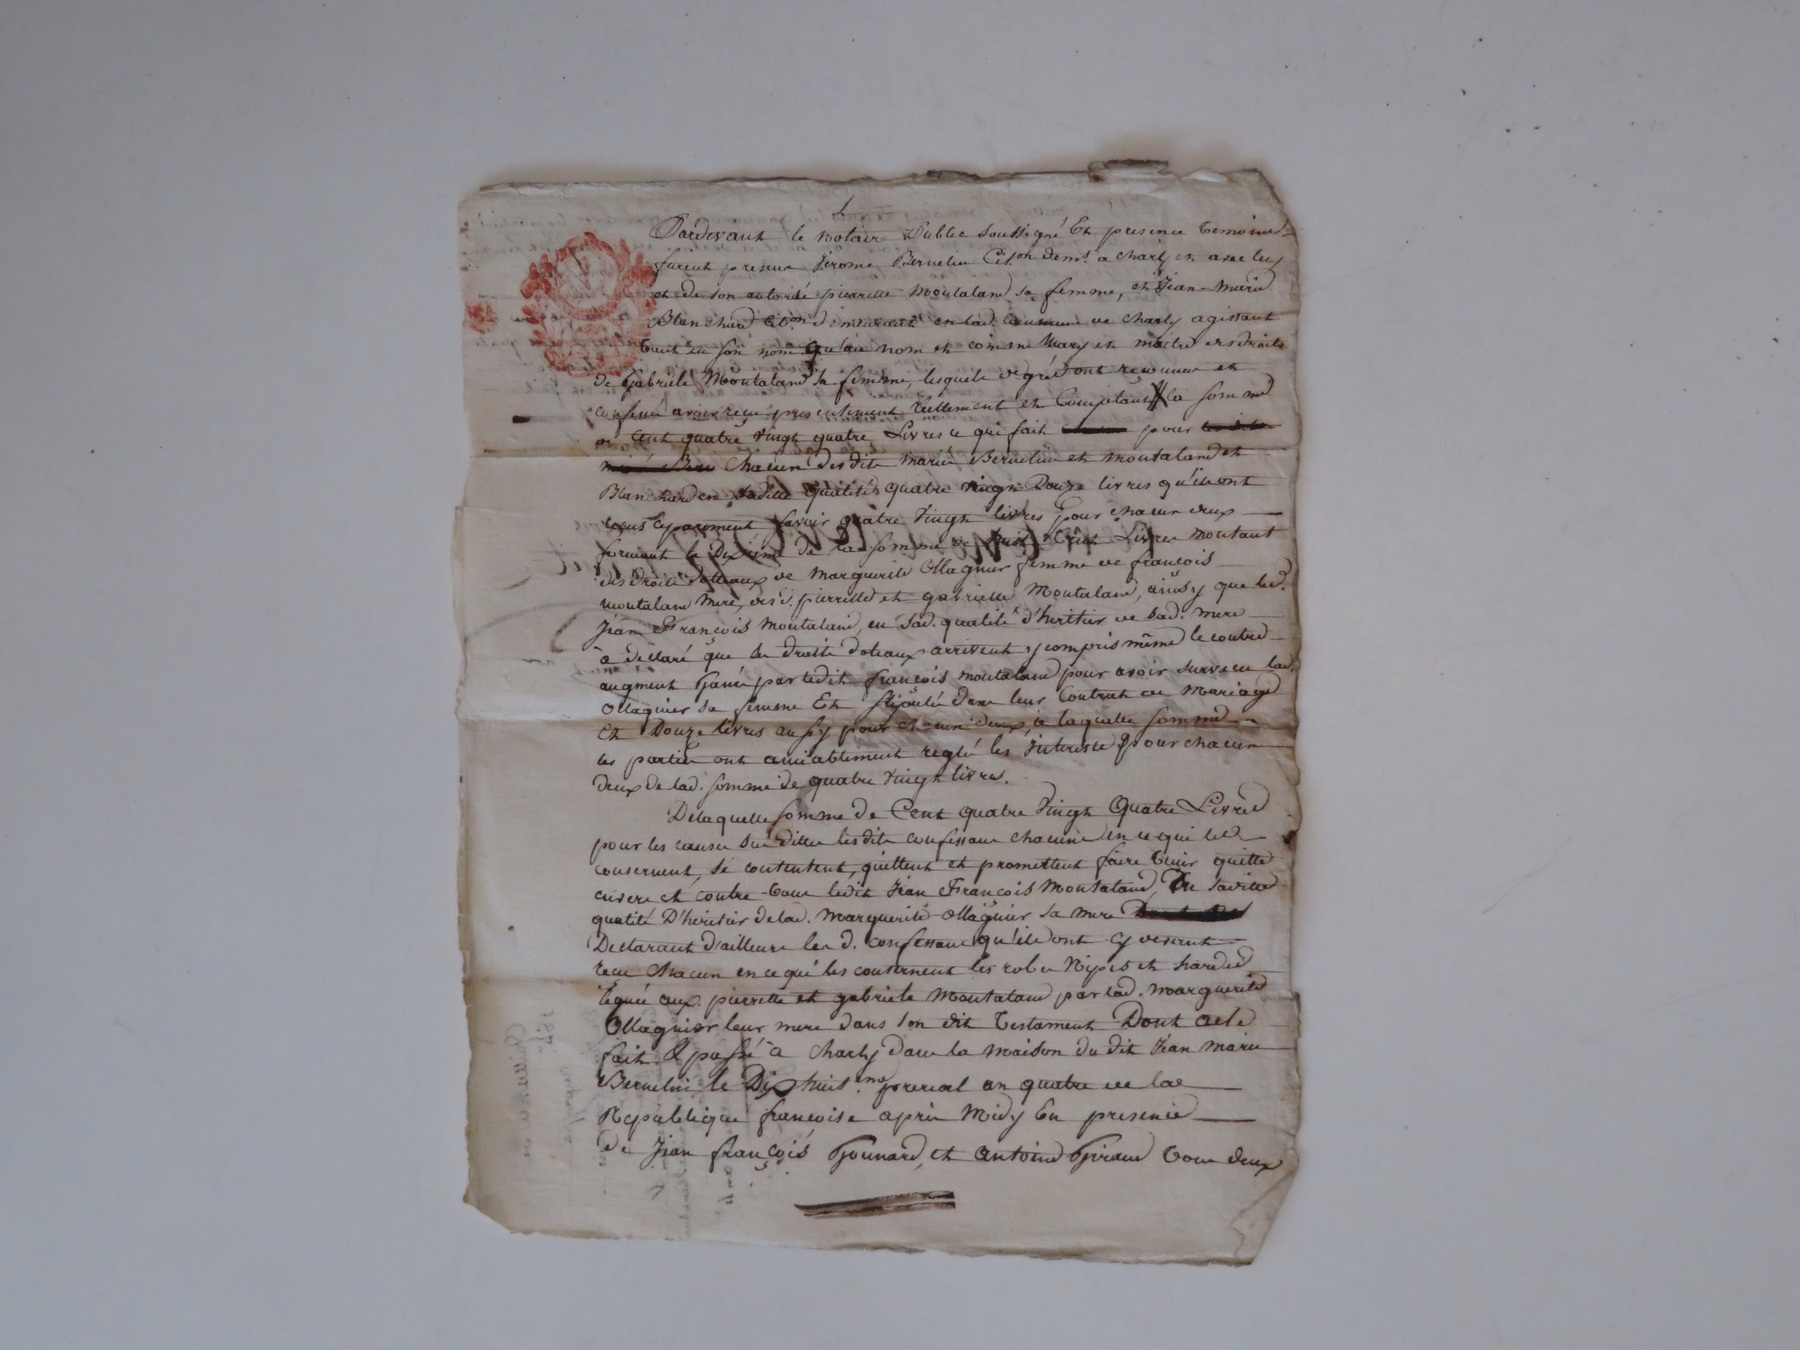 Pardevant le notaire Public soussigné Et presence temoins
furent presents Jerome Bernelin Cit.on dem.t a Charly et avec luy
et de son autorité pierrette Montaland sa femme, et Jean-Marie
Blanchard Cit.on demeurant en lad. Commune de Charly agissant
tant en son nom qu'au nom et comme Mary et maitre des droits
de Gabriele Montaland sa femme, lesquels de gré ont reconnu et
confessé avoir reçu presentement réellement et Comptant la somme
de Cent quatre vingt quatre Livres ce qui fait pour
Chacun desdits mariés Bernelin et montaland et
Blanchard en saditte qualité quatre vingt Douze livres qu'ils ont
reçus separement savoir quatre vingt livres pour chacun deux
formant le Dixieme de la somme de huit Cent Livres montant
des droits dotaux de Marguerite Ollagnier femme de françois
montaland mere, desd. pierrette et gabrielle Montaland, ainsy que led.
Jean François Montaland, en sad. qualité d'heritier de sad. mere
a declaré que les droits dotaux arrivent y compris même le contre
augment gané par ledit françois montaland pour avoir survecu lad.
Ollagnier sa femme Et stipulé dans leur Contrat de Mariage
Et Douze livres aussy pour chacun deux, a laquelle somme
les parties ont amiablement reglé les Interets pour chacun
deux de lad. somme de quatre vingt livres.
De laquelle somme de Cent quatre Vingt Quatre Livres
pour les causes sus dittes lesdits confessans chacune en ce qui les
consernent, se contentent, quittent et promettent faire tenir quitte
envers et contre tous ledit Jean François Montaland, En saditte
qualité D'heritier de lad. Marguerite Ollagnier sa mere
Declarant d'ailleurs les d. confessans qu'ils ont cy devant
reçu Chacun en ce qui les consernent les robes Nipes et hardes
legués aux pierrette et gabriele Montaland par lad. Marguerite
Ollagnier leur mere dans son dit Testament Dont acte
fait & passé a Charly dans la maison du dit Jean marie
Bernelin le Dix huit.me prereal an quatre de la
Republique françoise après Midy En presence
de Jean françois Gounard, et Antoine Giraud tous deux